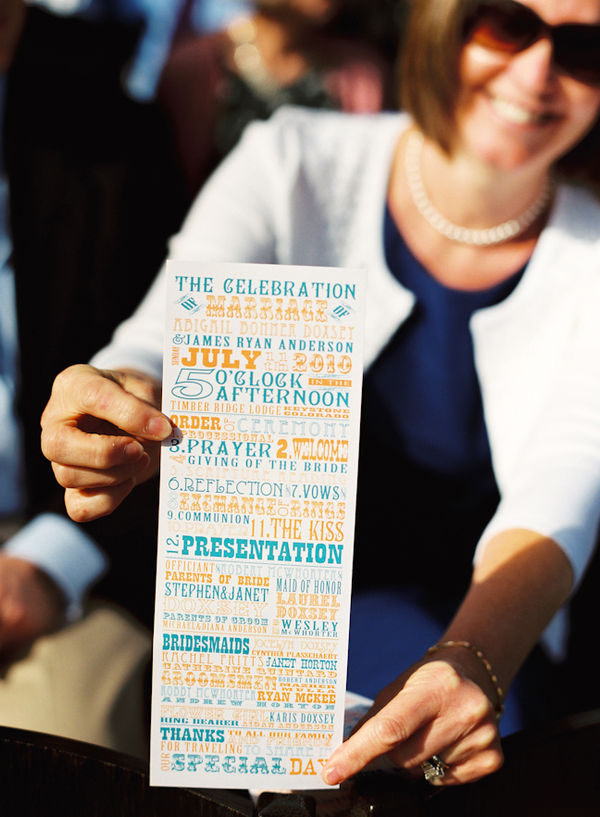 THE CELEBRATION
OF MARRIAGE OF
ABIGAIL BONNER DOXSEY
& JAMES RYAN ANDERSON
SUNDAY JULY 11th 2010
5 O'CLOCK IN THE
AFTERNOON
TIMBER RIDGE LODGE KEYSTONE COLORADO
ORDER OF CEREMONY
PROCESSIONAL
3. PRAYER 2. WELCOME
GIVING OF THE BRIDE
6. REFLECTION 7. VOWS
8. EXCHANGE OF RINGS
9. COMMUNION
10. PRAYER 11. THE KISS
12. PRESENTATION
OFFICIANT ROBERT MCWHORTER
PARENTS OF BRIDE MAID OF HONOR
STEPHEN & JANET LAUREL
DOXSEY DOXSEY
PARENTS OF GROOM WESLEY
MICHAEL & DIANA ANDERSON MCWHORTER
BRIDESMAIDS JOCELYN DOXSEY
CYNTHIA PLASSCHAERT
RACHEL PRITTS JANET HORTON
CATHERINE GUINTARD
GROOMSMEN ROBERT ANDERSON
MULLA
ROBBY MCWHORTER RYAN MCKEE
ANDREW HORTON
FLOWER GIRL KARIS DOXSEY
RING BEARER AIDAN ANDERSON
THANKS TO ALL OUR FAMILY
& FRIENDS
FOR TRAVELING TO SHARE IN
OUR SPECIAL DAY